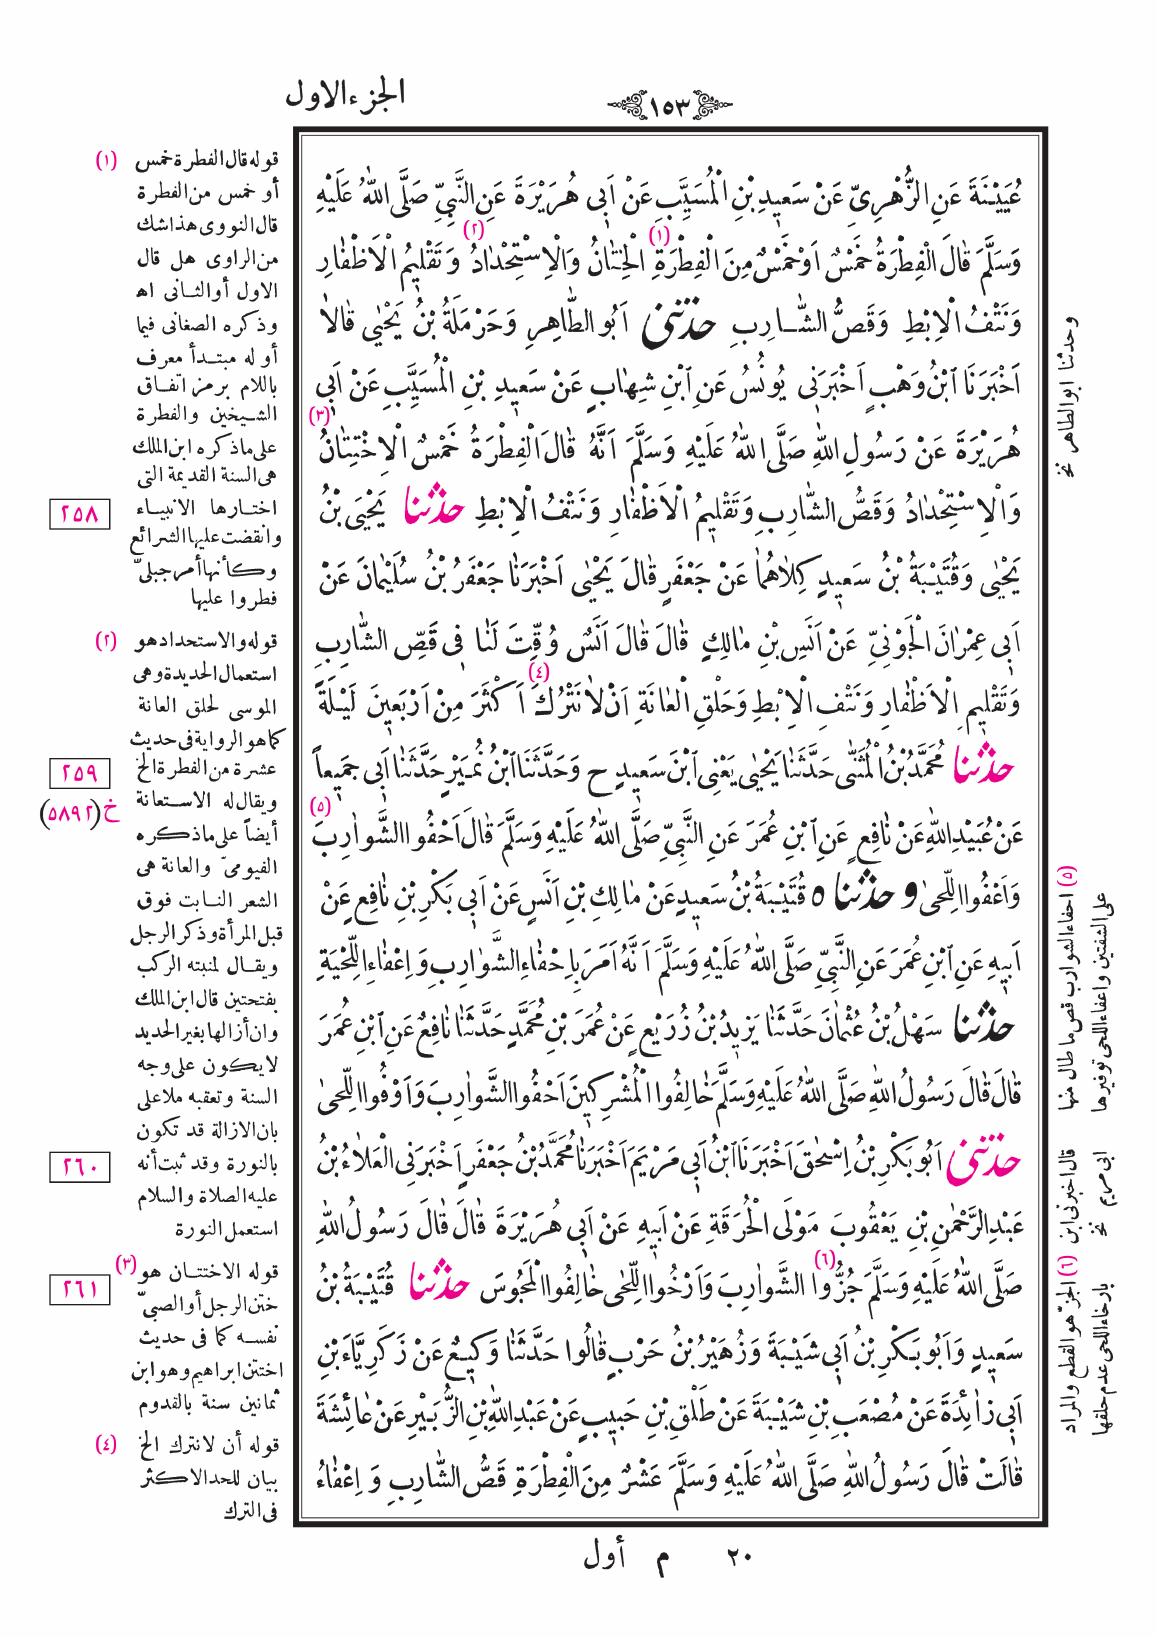 الجزء الاول
١٥٣
عُيَيْنَةَ عَنِ الزُّهْرِيِّ عَنْ سَعِيدِ بْنِ الْمُسَيَّبِ عَنْ اَبِى هُرَيْرَةَ عَنِ النَّبِيِّ صَلَّى اللهُ عَلَيْهِ
وَسَلَّمَ قَالَ الْفِطْرَةُ خَمْسٌ اَوْ خَمْسٌ مِنَ الْفِطْرَةِ (١) الْخِتَانُ وَالْاِسْتِحْدَادُ (٢) وَتَقْلِيمُ الْاَظْفَارِ
وَنَتْفُ الْاِبْطِ وَقَصُّ الشَّارِبِ حَدَّثَنِى اَبُو الطَّاهِرِ وَحَرْمَلَةُ بْنُ يَحْيٰى قَالَا
اَخْبَرَنَا ابْنُ وَهْبٍ اَخْبَرَنِى يُونُسُ عَنِ ابْنِ شِهَابٍ عَنْ سَعِيدِ بْنِ الْمُسَيَّبِ عَنْ اَبِى
هُرَيْرَةَ عَنْ رَسُولِ اللهِ صَلَّى اللهُ عَلَيْهِ وَسَلَّمَ اَنَّهُ قَالَ الْفِطْرَةُ خَمْسٌ الْاِخْتِتَانُ (٣)
وَالْاِسْتِحْدَادُ وَقَصُّ الشَّارِبِ وَتَقْلِيمُ الْاَظْفَارِ وَنَتْفُ الْاِبْطِ حَدَّثَنَا يَحْيَى بْنُ
يَحْيٰى وَقُتَيْبَةُ بْنُ سَعِيدٍ كِلَاهُمَا عَنْ جَعْفَرٍ قَالَ يَحْيٰى اَخْبَرَنَا جَعْفَرُ بْنُ سُلَيْمَانَ عَنْ
اَبِى عِمْرَانَ الْجَوْنِيِّ عَنْ اَنَسِ بْنِ مَالِكٍ قَالَ قَالَ اَنَسٌ وُقِّتَ لَنَا فِى قَصِّ الشَّارِبِ
وَتَقْلِيمِ الْاَظْفَارِ وَنَتْفِ الْاِبْطِ وَحَلْقِ الْعَانَةِ اَنْ لَا نَتْرُكَ (٤) اَكْثَرَ مِنْ اَرْبَعِينَ لَيْلَةً
حَدَّثَنَا مُحَمَّدُ بْنُ الْمُثَنّٰى حَدَّثَنَا يَحْيٰى يَعْنِى ابْنَ سَعِيدٍ ح وَحَدَّثَنَا ابْنُ نُمَيْرٍ حَدَّثَنَا اَبِى جَمِيعاً
عَنْ عُبَيْدِ اللهِ عَنْ نَافِعٍ عَنِ ابْنِ عُمَرَ عَنِ النَّبِيِّ صَلَّى اللهُ عَلَيْهِ وَسَلَّمَ قَالَ اَحْفُوا الشَّوَارِبَ (٥)
وَاَعْفُوا اللِّحٰى و حَدَّثَنَا ه قُتَيْبَةُ بْنُ سَعِيدٍ عَنْ مَالِكِ بْنِ اَنَسٍ عَنْ اَبِى بَكْرِ بْنِ نَافِعٍ عَنْ
اَبِيهِ عَنِ ابْنِ عُمَرَ عَنِ النَّبِيِّ صَلَّى اللهُ عَلَيْهِ وَسَلَّمَ اَنَّهُ اَمَرَ بِاِحْفَاءِ الشَّوَارِبِ وَاِعْفَاءِ اللِّحْيَةِ
حَدَّثَنَا سَهْلُ بْنُ عُثْمَانَ حَدَّثَنَا يَزِيدُ بْنُ زُرَيْعٍ عَنْ عُمَرَ بْنِ مُحَمَّدٍ حَدَّثَنَا نَافِعٌ عَنِ ابْنِ عُمَرَ
قَالَ قَالَ رَسُولُ اللهِ صَلَّى اللهُ عَلَيْهِ وَسَلَّمَ خَالِفُوا الْمُشْرِكِينَ اَحْفُوا الشَّوَارِبَ وَاَوْفُوا اللِّحٰى
حَدَّثَنِى اَبُو بَكْرِ بْنُ اِسْحٰقَ اَخْبَرَنَا ابْنُ اَبِى مَرْيَمَ اَخْبَرَنَا مُحَمَّدُ بْنُ جَعْفَرٍ اَخْبَرَنِى الْعَلَاءُ بْنُ
عَبْدِ الرَّحْمٰنِ بْنِ يَعْقُوبَ مَوْلَى الْحُرَقَةِ عَنْ اَبِيهِ عَنْ اَبِى هُرَيْرَةَ قَالَ قَالَ رَسُولُ اللهِ
صَلَّى اللهُ عَلَيْهِ وَسَلَّمَ جُزُّوا (٦) الشَّوَارِبَ وَاَرْخُوا اللِّحٰى خَالِفُوا الْمَجُوسَ حَدَّثَنَا قُتَيْبَةُ بْنُ
سَعِيدٍ وَاَبُو بَكْرِ بْنُ اَبِى شَيْبَةَ وَزُهَيْرُ بْنُ حَرْبٍ قَالُوا حَدَّثَنَا وَكِيعٌ عَنْ زَكَرِيَّاءَ بْنِ
اَبِى زَائِدَةَ عَنْ مُصْعَبِ بْنِ شَيْبَةَ عَنْ طَلْقِ بْنِ حَبِيبٍ عَنْ عَبْدِ اللهِ بْنِ الزُّبَيْرِ عَنْ عَائِشَةَ
قَالَتْ قَالَ رَسُولُ اللهِ صَلَّى اللهُ عَلَيْهِ وَسَلَّمَ عَشْرٌ مِنَ الْفِطْرَةِ قَصُّ الشَّارِبِ وَاِعْفَاءُ
(١) قوله قال الفطرة خمس
أو خمس من الفطرة
قال النووى هذا شك
من الراوى هل قال
الاول أو الثانى اه
وذكره الصغانى فيما
أوله مبتدأ معرف
باللام برمز اتفاق
الشيخين والفطرة
على ماذكره ابن الملك
هى السنة القديمة التى
اختارها الانبياء
وانقضت عليها الشرائع
وكأنها أمر جبلىّ
فطروا عليها
(٢) قوله والاستحداد هو
استعمال الحديدة وهى
الموسى لحلق العانة
كما هو الرواية فى حديث
عشرة من الفطرة الخ
ويقال له الاستعانة
أيضاً على ماذكره
الفيومىّ والعانة هى
الشعر النابت فوق
قبل المرأة وذكر الرجل
ويقال لمنبته الركب
بفتحتين قال ابن الملك
وان أزالها بغير الحديد
لا يكون على وجه
السنة وتعقبه ملا على
بان الازالة قد تكون
بالنورة وقد ثبت أنه
عليه الصلاة والسلام
استعمل النورة
(٣) قوله الاختتان هو
ختن الرجل أو الصبىّ
نفسه كما فى حديث
اختتن ابراهيم وهو ابن
ثمانين سنة بالقدوم
(٤) قوله أن لا نترك الخ
بيان للحد الاكثر
فى الترك
٢٥٨
٢٥٩
خ (٥٨٩٢)
٢٦٠
٢٦١
وحدثنا ابو الطاهر نخ
(٥) احفاء الشوارب قص ما طال منها
على الشفتين واعفاء اللحى توفيرها
قال اخبرنى ابن
ابى مريم نخ
(٦) الجزّ هو القطع والمراد
بارخاء اللحى عدم حلقها
٢٠ م أول